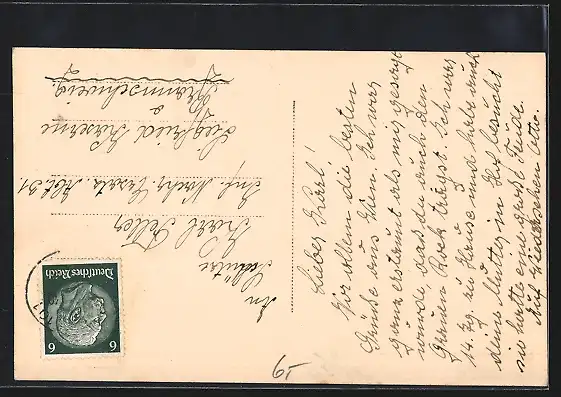 Lieber Karl!
Vor allem die besten
Grüße aus Wien. Ich war
ganz erstaunt als mir gesagt
wurde, daß du auch den
Grauen Rock trägst. Ich war
14. Tg. zu Hause und habe auch
deine Mutter in Hof besucht
sie hatte eine große Freude.
Auf Wiedersehen Otto.
An
Schütze
Karl
Inf. Nachr. Ersatz. Abt. 31.
Siegfried Kaserne
Braunschweig.
Deutsches Reich
6 6